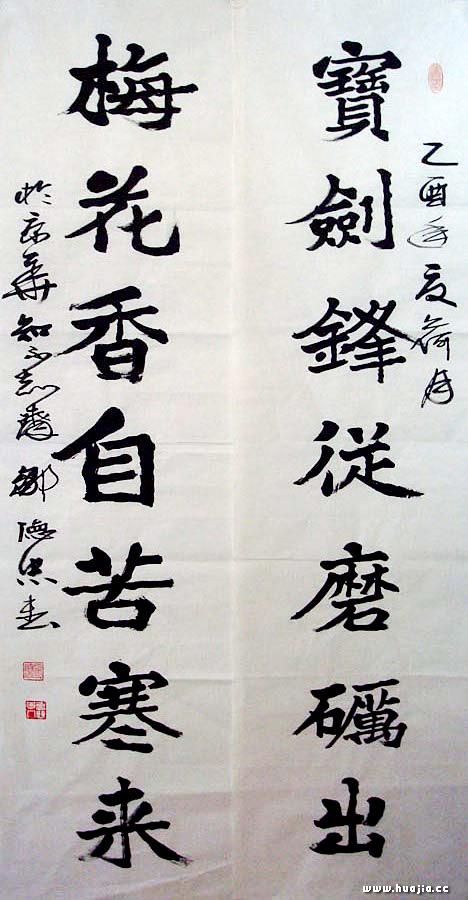 乙酉年夏荷月
寶劍鋒從磨礪出
梅花香自苦寒来
於京華知不齋 鄒德忠書
www.huajia.cc